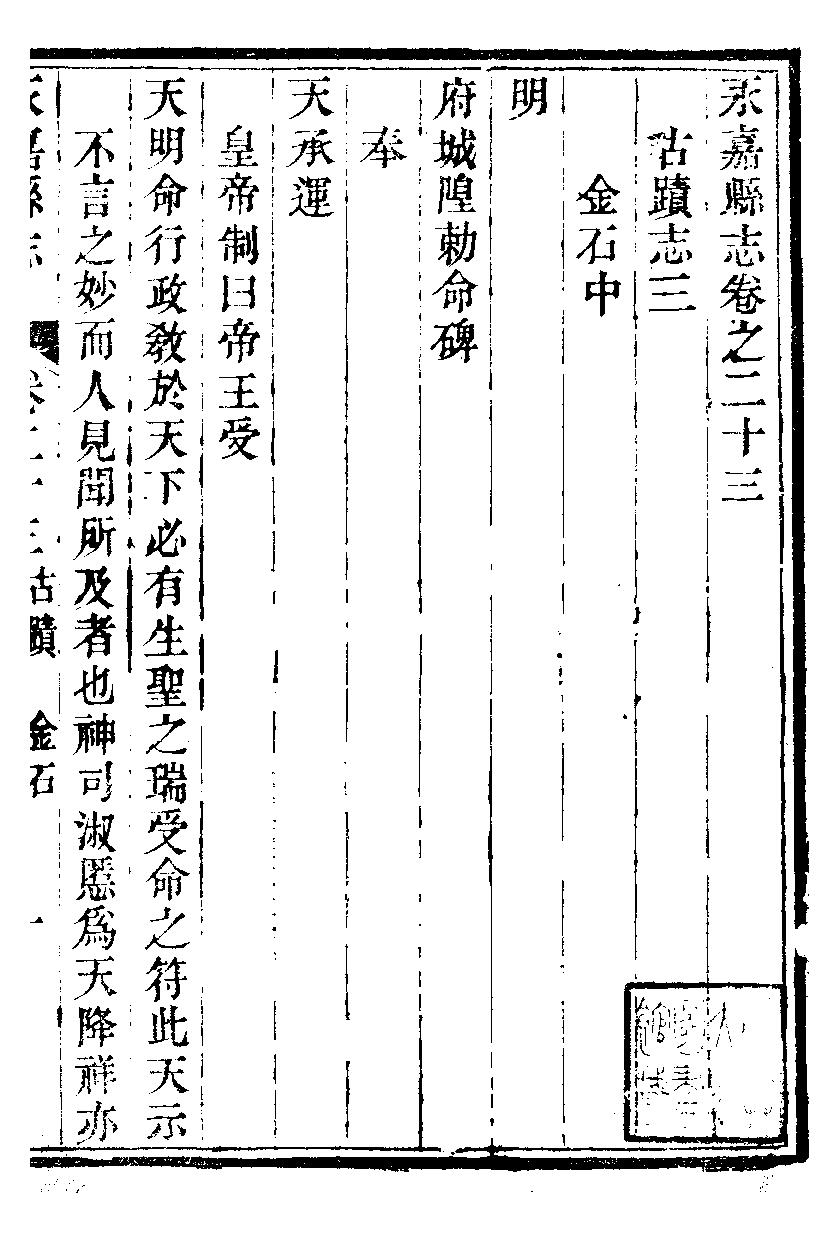 永嘉縣志卷之二十三
古蹟志三
金石中
明
府城隍勅命碑
奉
天承運
皇帝制曰帝王受
天明命行政敎於天下必有生聖之瑞受命之符此天示
不言之妙而人見聞所及者也神司淑慝爲天降祥亦
永嘉縣志 卷二十三 古蹟 金石 一